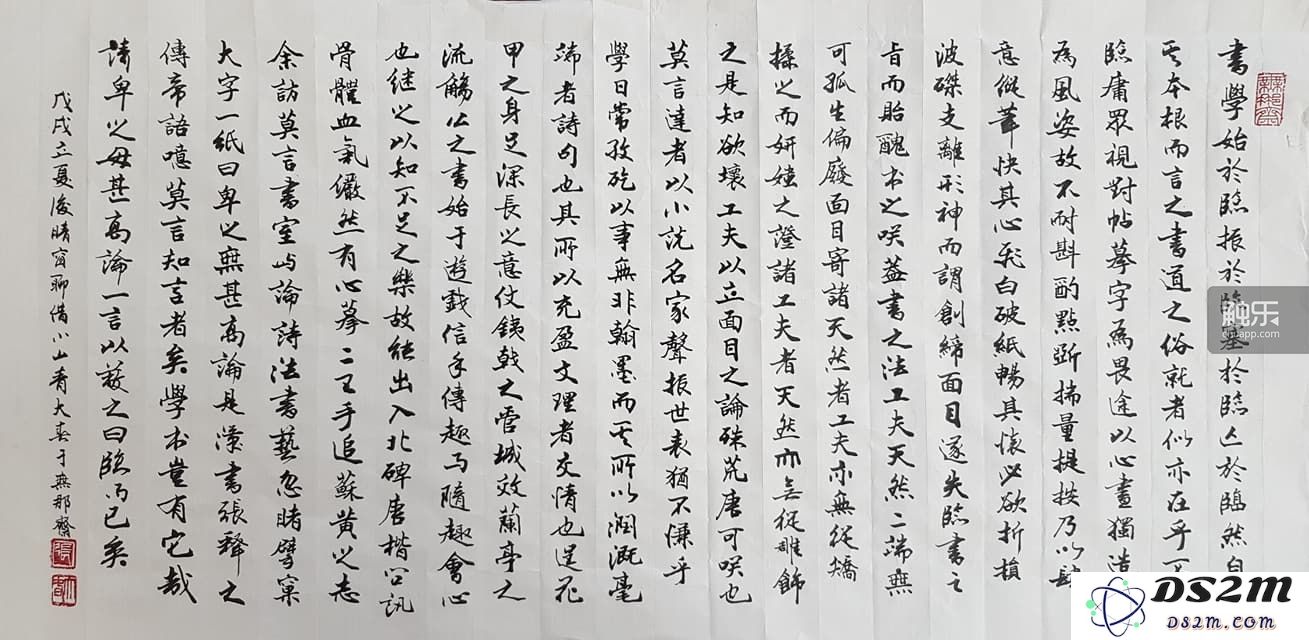 書學始於臨振於臨基於臨亡於臨然自
其本根而言之書道之俗就者似亦在乎
臨庸眾視對帖摹字為畏途以心畫獨造
為風姿故不耐斟酌點斲揣量提按乃以肆
意縱筆快其心飛白破紙暢其懷必欲折損
波磔支離形神而謂創締面目遂失臨書之
旨而貽醜書之咲蓋書之法工夫天然二端無
可孤生偏廢面目寄諸天然者工夫亦無從矯
揉之而妍媸之證諸工夫者天然亦無從雕飾
之是知欲壞工夫以立面目之論殊荒唐可咲也
莫言達者以小説名家聲振世表猶不慊乎
學日常孜矻以事無非翰墨而其所以潤溉毫
端者詩句也其所以充盈文理者交情也逞花
甲之身足深長之意仗銕戟之管城效蘭亭之
流觴公之書始于遊戲信手傳趣与隨趣會心
也继之以知不足之樂故能出入北碑唐楷公訊
骨體血氣儼然有心摹二王手追蘇黄之志
余訪莫言書室屿論詩法書藝忽睹擘窠
大字一紙曰卑之無甚高論是漢書張釋之
傳帝語噫莫言知言者矣學书豈有它哉
請卑之毋甚高論一言以蔽之曰臨而已矣
戊戌立夏後晴窗聊借小山看大春于無那齋
触乐
chuapp.com
DS2M
DS2m.com